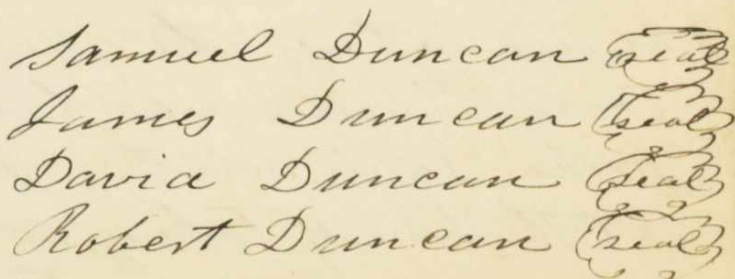 Samuel Duncan seal
James Duncan seal
David Duncan seal
Robert Duncan seal